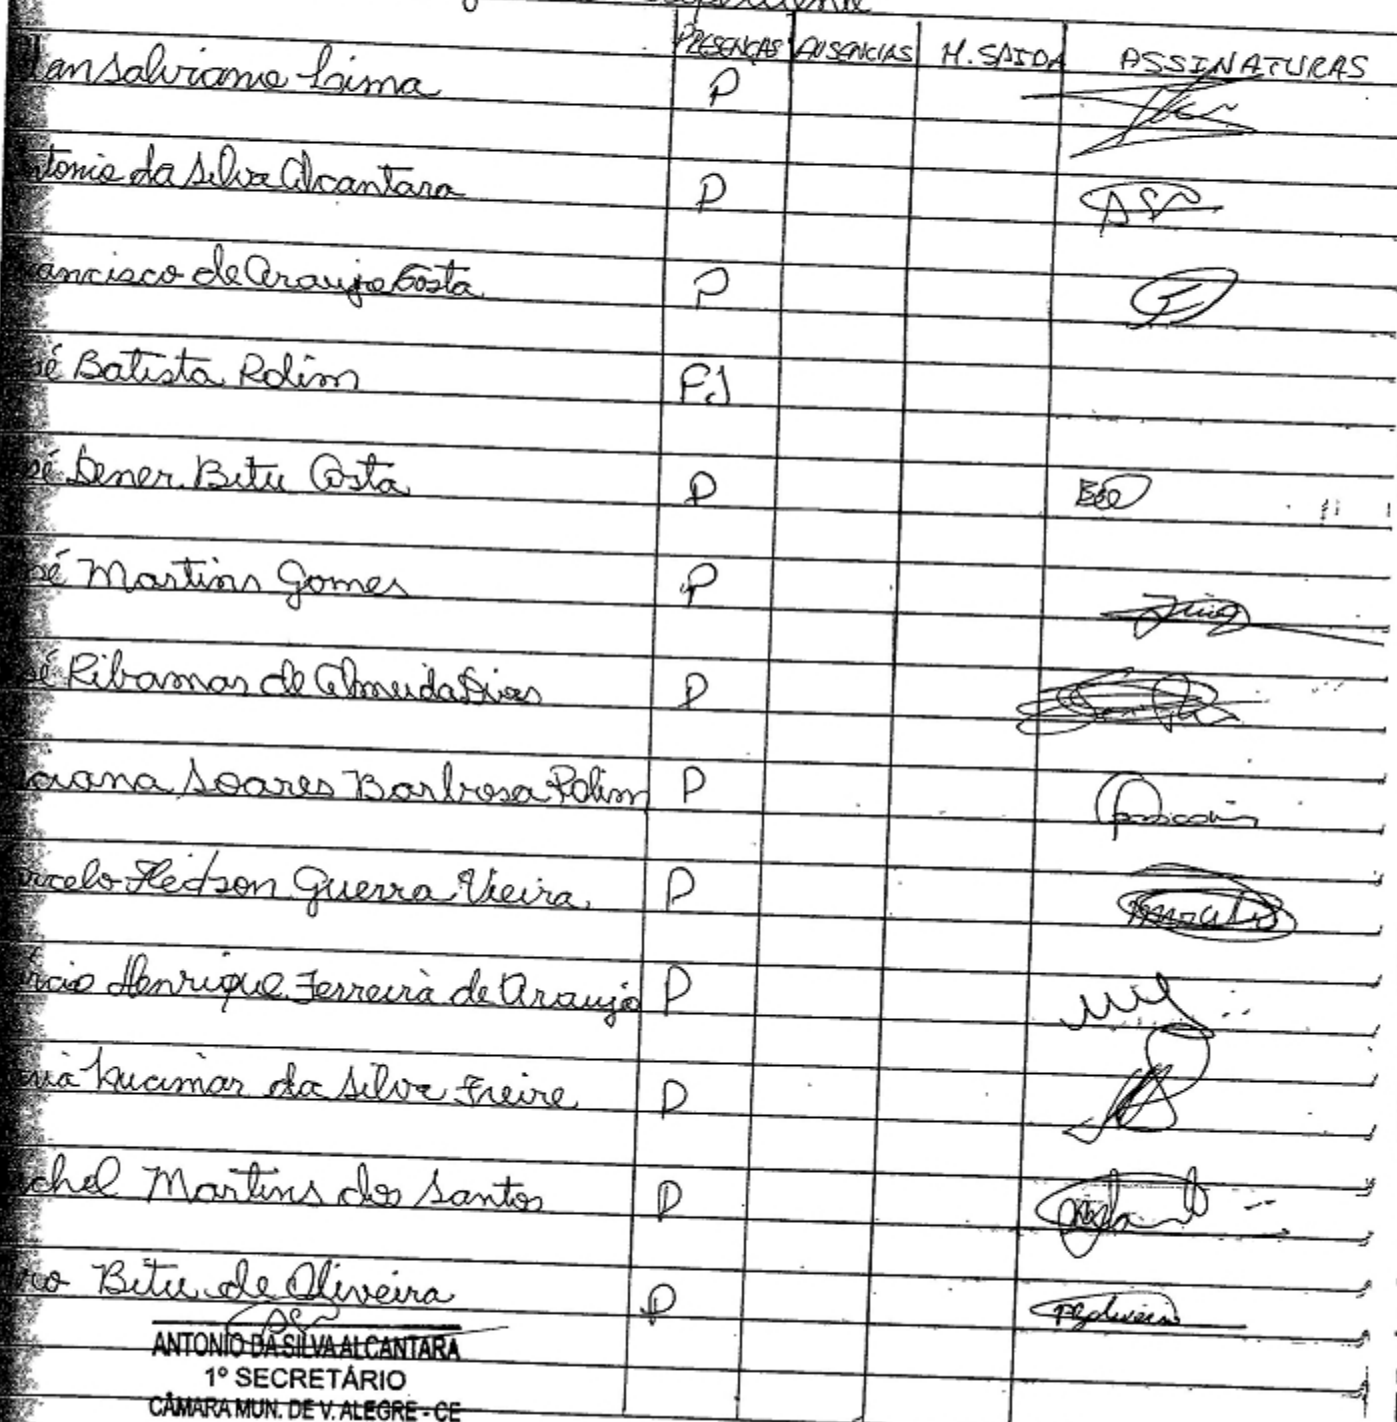 PRESENÇAS AUSENCIAS H. SAIDA ASSINATURAS
lan Salviano Lima P
ntonio da Silva Alcantara P
rancisco de Araujo Costa P
sé Batista Rolim P.J
sé Dener Bitu Costa P
sé Martins Gomes P
sé Ribamar de Almeida Dias P
Soares Barbosa Rolim P
rcelo Hedson Guerra Vieira P
rcio Henrique Ferreira de Araujo P
ria Lucimar da Silva Freire P
chel Martins dos Santos P
ro Bitu de Oliveira P
ANTONIO DA SILVA ALCANTARA
1º SECRETÁRIO
CÂMARA MUN. DE V. ALEGRE - CE